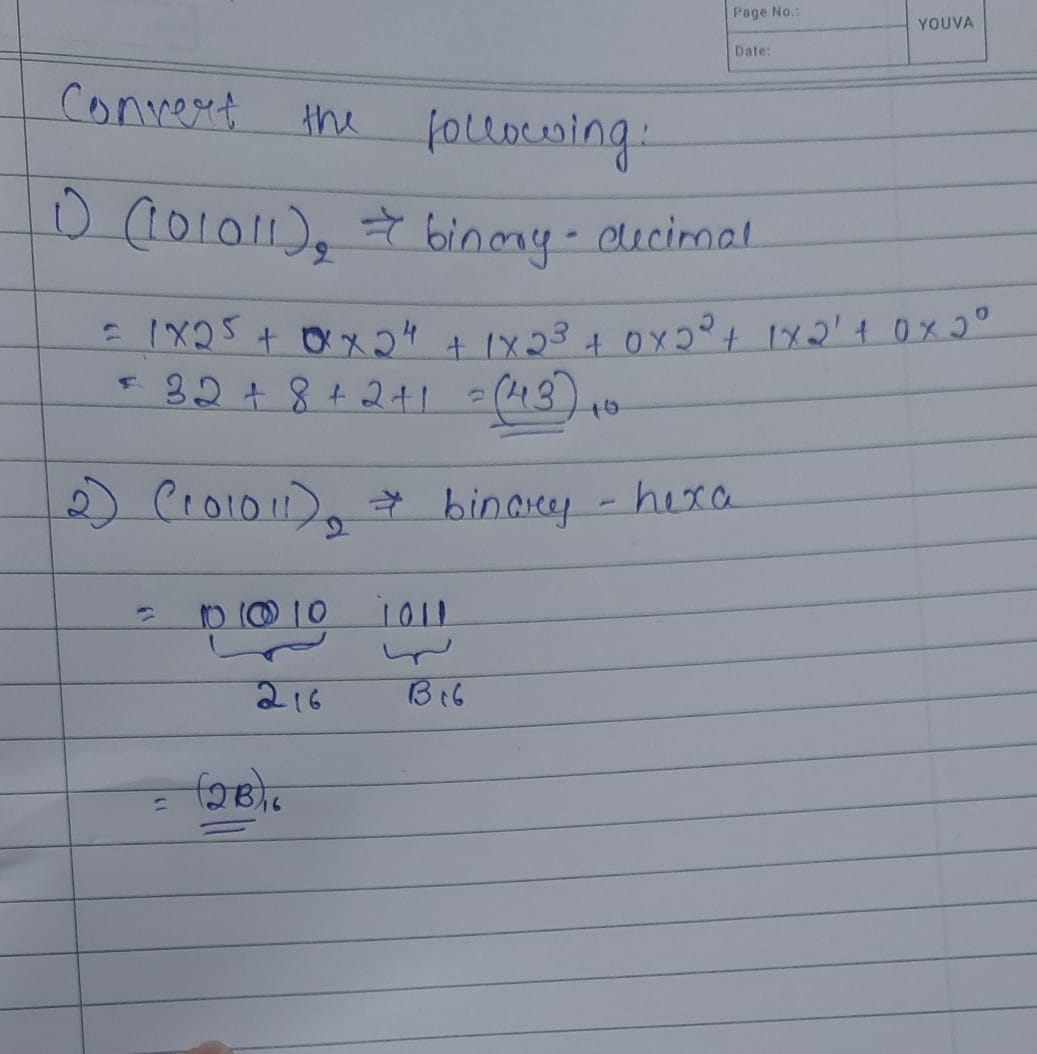 Page No.:
YOUVA
Date:
Convert the following:
1) (101011)₂ ⇒ binary - decimal
= 1×2⁵ + 0××2⁴ + 1×2³ + 0×2² + 1×2¹ + 0×2⁰
= 32 + 8 + 2+1 = (43)₁₀
2) (101011)₂ ⇒ binary - hexa
= 10 10 1011
2₁₆ B₁₆
= (2B)₁₆